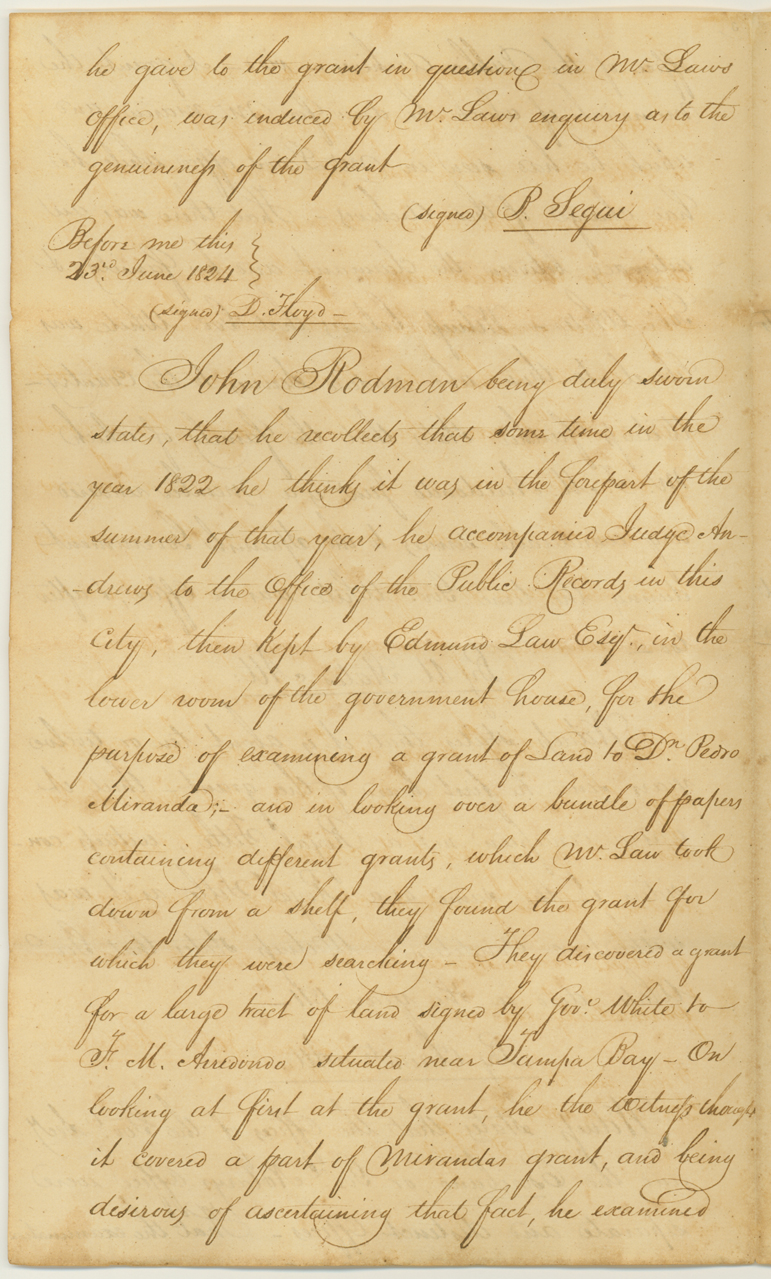 he gave to the grant in question in Mr. Laws
office, was induced by Mr. Laws enquiry as to the
genuineness of the grant
(signed) P. Segui
Before me this
23rd. June 1824
(signed) D. Floyd -
John Rodman being duly sworn
states, that he recollects that some time in the
year 1822 he thinks it was in the forepart of the
summer of that year, he accompanied Judge An-
-drews to the Office of the Public Records in this
City, then kept by Edmund Law Esqr., in the
lower room of the government house, for the
purpose of examining a grant of Land to Dn. Pedro
Miranda;- and in looking over a bundle of papers
containing different grants, which Mr. Law took
down from a shelf, they found the grant for
which they were searching - They discovered a grant
for a large tract of land signed by Govr. White to
F. M. Arredondo situated near Tampa Bay - On
looking at first at the grant, he the witness thought
it covered a part of Mirandas grant, and being
desirous of ascertaining that fact, he examined